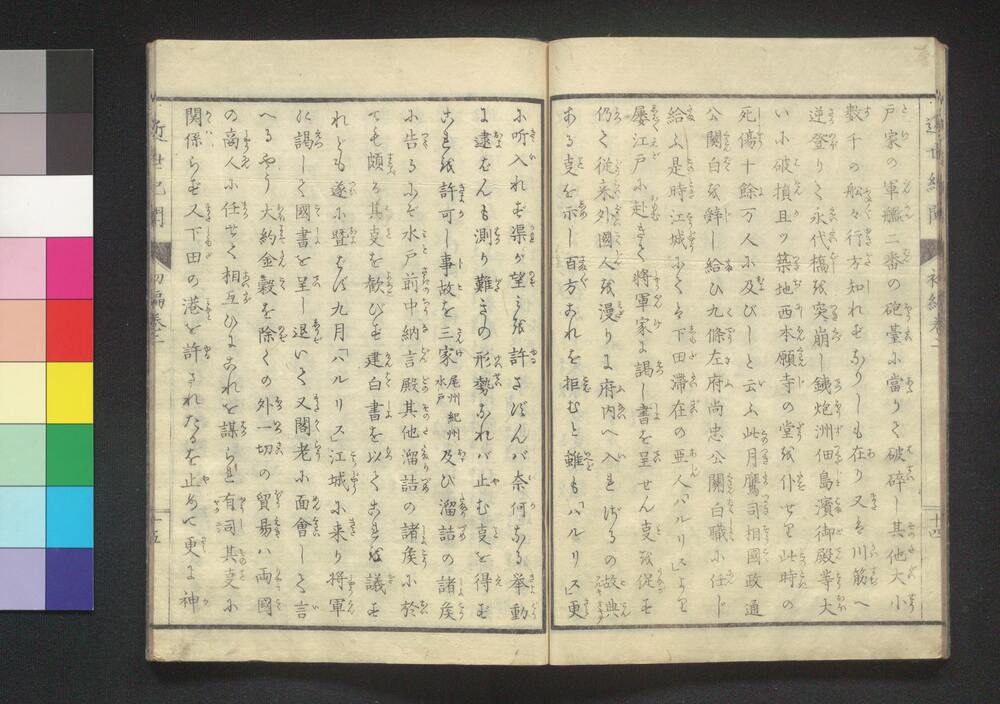 戸家の軍艦二番の砲臺に當りて破碎し其他大小
数千の船々行方知れずなりしも在り又は川筋へ
逆登りて永代橋を突崩し鉄炮洲佃島濱御殿等大
いに破損且ツ築地西本願寺の堂を仆せり此時の
死傷十餘万人に及びしと云ふ此月鷹司相國政通
公関白を辞し給ひ九條左府尚忠公関白職に任ド
給ふ是時江城にては下田滞在の亜人「ハルリス」より
屡江戸に赴きて将軍家に謁し書を呈せん支を促す
仍て従来外國人を漫りに府内へ入れざるの故典
ある支を示し百方これを拒むと雖も「ハルリス」更
に听入れず渠が望みを許さずんバ奈何なる挙動
に逮ばんも測り難きの形勢なれバ止む支を得ず
これを許可し事故を三家尾州紀州水戸及び溜詰の諸侯
に告るに水戸前中納言殿其他溜詰の諸侯に於
ても頗る其支を歓びず建白書を以てこれを議す
れども遂に曁ばず九月「ハルリス」江城に来り将軍
に謁して國書を呈し退いて又閣老に面會して言
へるやう大約金穀を除くの外一切の貿易ハ両國
の商人に任せて相互ひにこれを謀らせ有司其支に
関係らず又下田の港を許されたるを止めて更に神
近世紀聞
初編巻二
十四
近世紀聞
初編巻二
十五